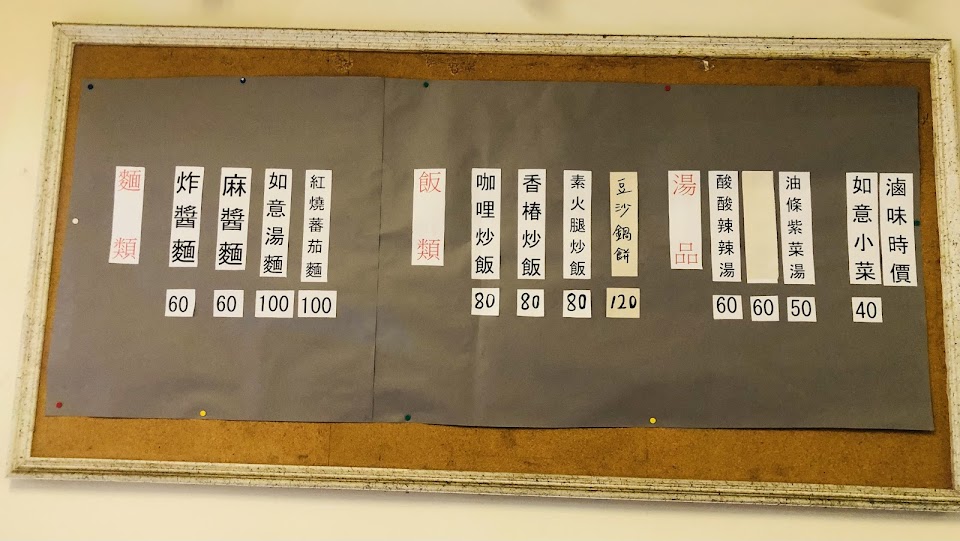 麵類
炸醬麵
60
麻醬麵
60
如意湯麵
100
紅燒蕃茄麵
100
飯類
咖哩炒飯
80
香椿炒飯
80
素火腿炒飯
80
豆沙鍋餅
120
湯品
酸酸辣辣湯
60
60
油條紫菜湯
50
如意小菜
40
滷味時價